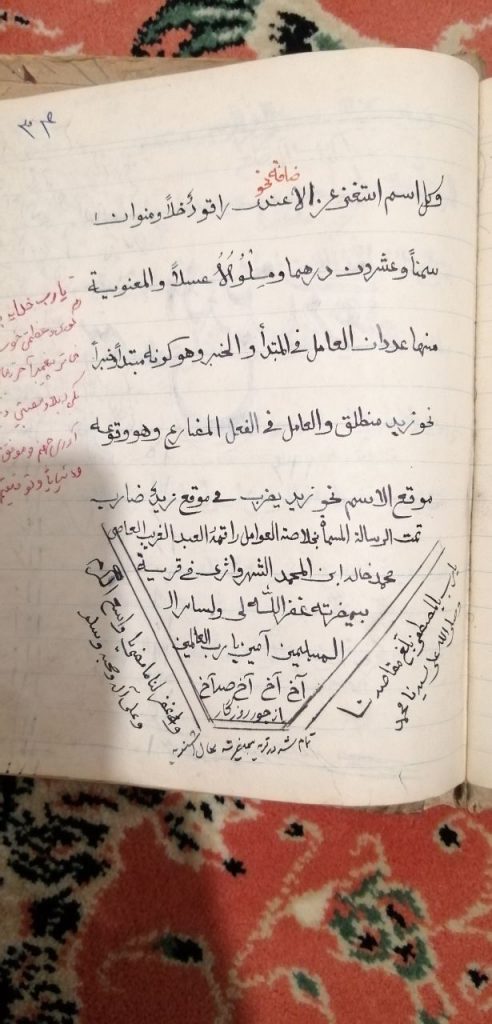 ٣٣
ضافة نحو
وكل اسم استغنى عن الا عندى راقود خلاً و منوان
سمناً و عشرون درهما و مِلْوُهُ عسلاً و المعنوية
منها عددان العامل فى المبتدأ و الخبر و هو كونه مبتدأ خبراً
نحو زيد منطلق و العامل فى الفعل المضارع و هو وقوعه
موقع الاسم نحو زيد يضرب فى موقع زيد ضارب
تمت الرسالة المسماة بخلاصة العوامل راقمة العبد الغريب العاصى
محمد خالد ابن المحمد الشهروازى فى قرية
غفر الله لى و لسائر ال
المسلمين آمين يا رب العالمين
آخ آخ آخ صد آخ
از جور روزگار
تمام شد در قريه
يا رب بالمصطفى بلغ مقاصدنا
صلى الله على سيدنا محمد
واغفر لنا ما مضى يا واسع الكرم
و على آله و صحبه و سلم
يا رب